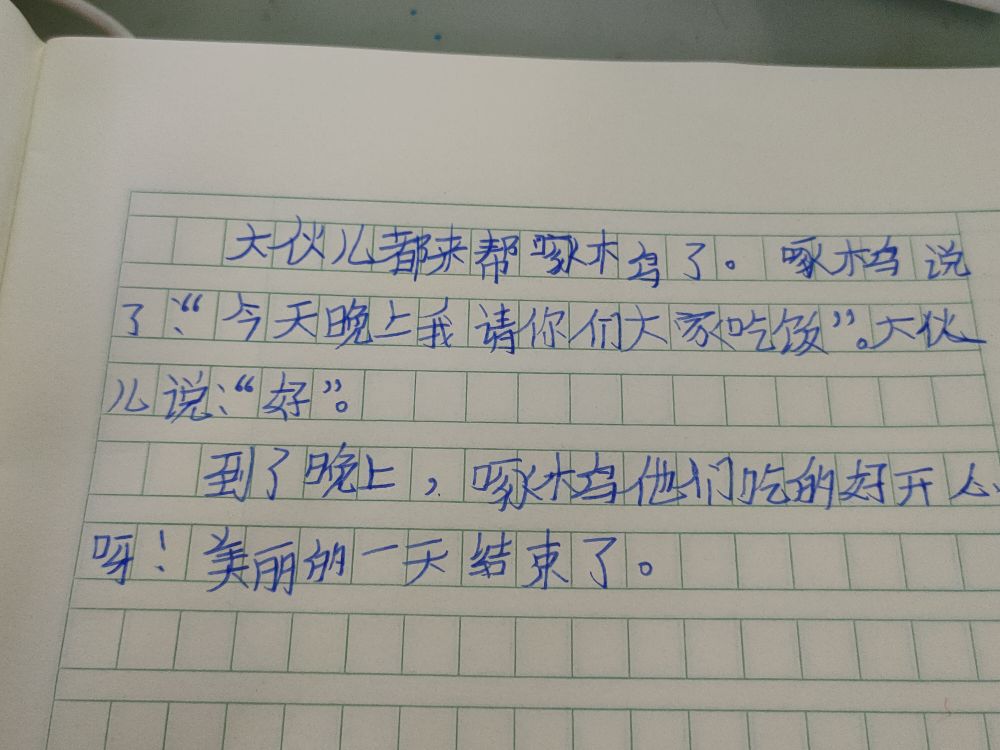 大伙儿都来帮啄木鸟了。啄木鸟说
了:“今天晚上我请你们大家吃饭”。大伙
儿说:“好”。
到了晚上,啄木鸟他们吃的好开心
呀!美丽的一天结束了。